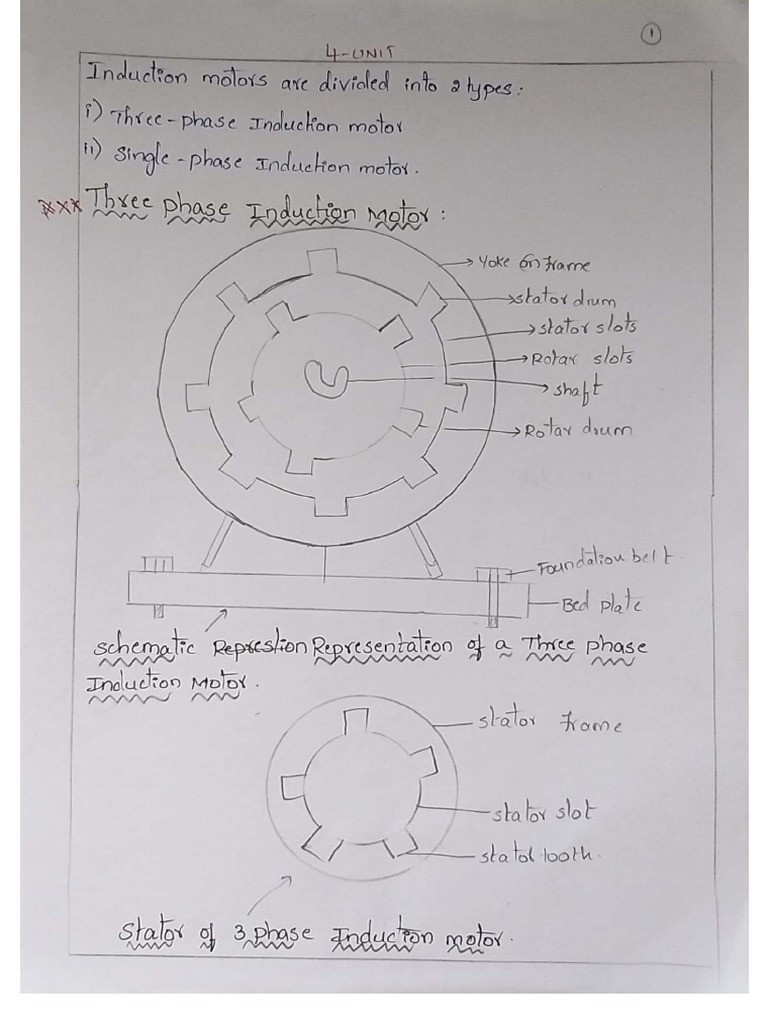 1
4-UNIT
Induction motors are divided into 2 types:
i) Three-phase Induction motor
ii) Single-phase Induction motor.
xxx Three phase Induction Motor:
Yoke or frame
stator drum
stator slots
Rotar slots
shaft
Rotar drum
Foundation belt
Bed plate
Schematic Represtion Representation of a Three phase
Induction Motor.
stator frame
stator slot
stator tooth.
Stator of 3 phase Induction motor.